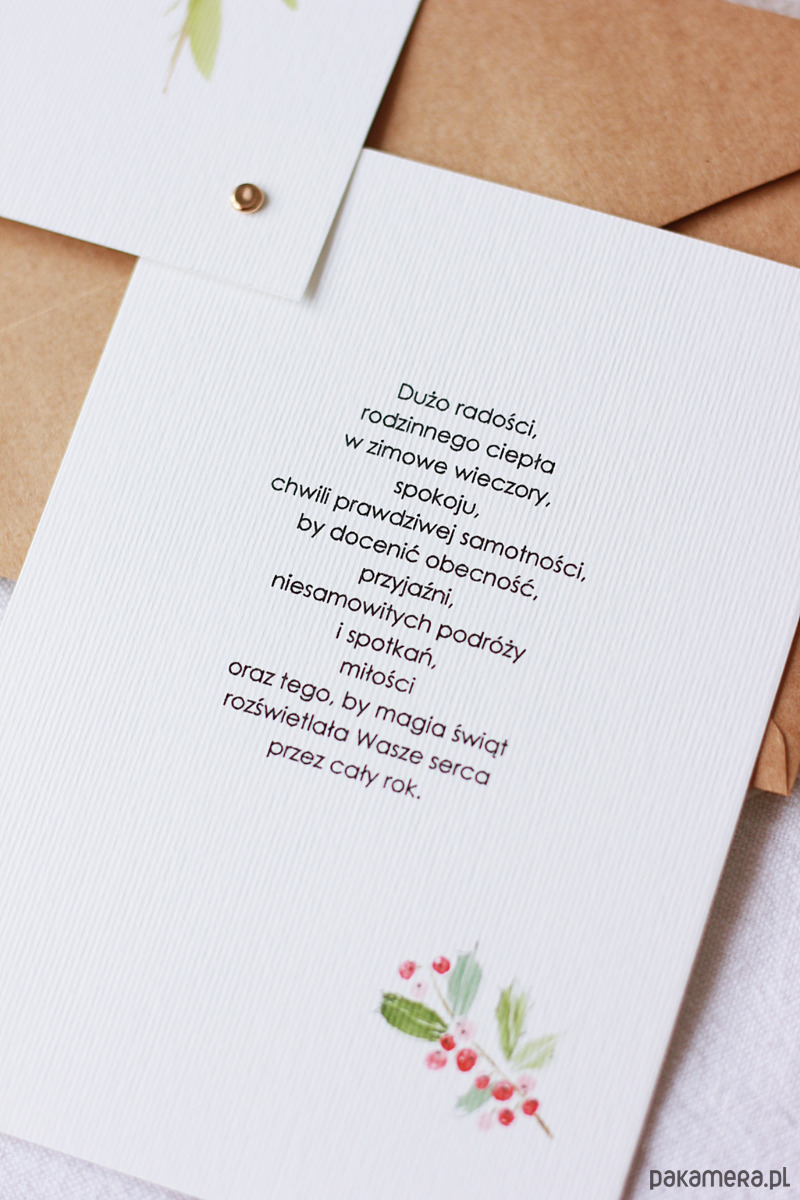 Dużo radości,
rodzinnego ciepła
w zimowe wieczory,
spokoju,
chwili prawdziwej samotności,
by docenić obecność,
przyjaźni,
niesamowitych podróży
i spotkań,
miłości
oraz tego, by magia świąt
rozświetlała Wasze serca
przez cały rok.
pakamera.pl